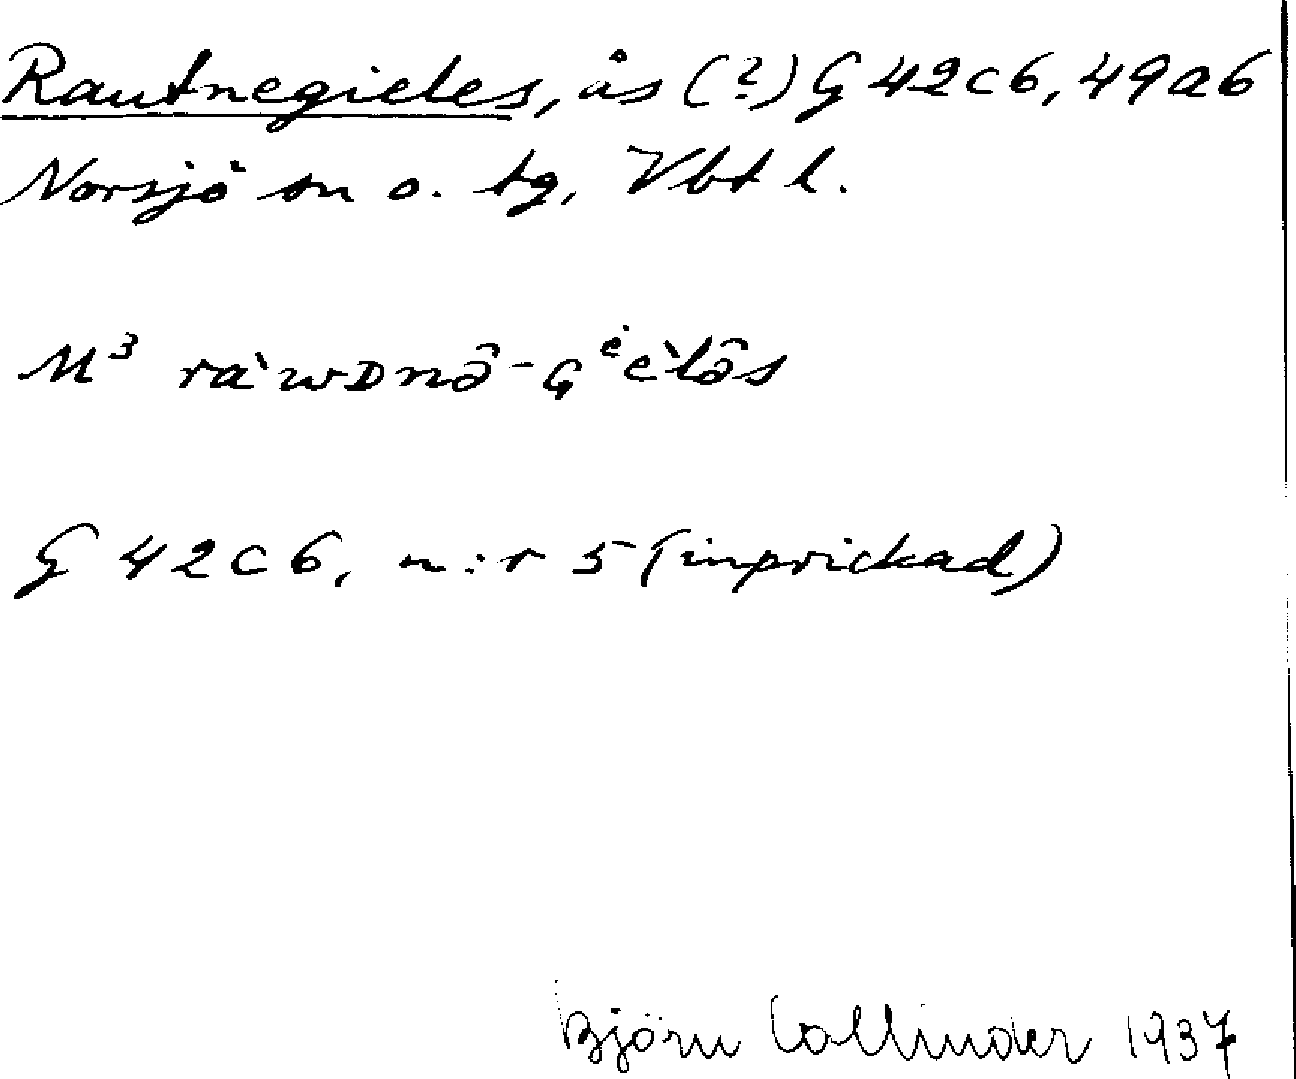 Rautnegieles, ås (?) G 42c6, 49a6
Norsjö sn o. tg, Vbt l.
M³ ràwᴅnô-ɢᵉèlôs
G 42c6, n:r 5 (inprickad)
Björn Collinder 1937